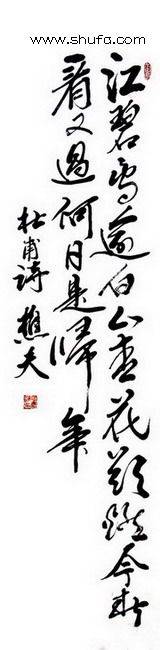 www.shufa.com
江碧鳥逾白山青花欲燃今春
看又過何日是歸年
杜甫詩 樵夫